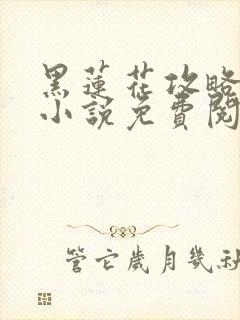 黑蓮花攻略
小說免費閱
管它歲月幾